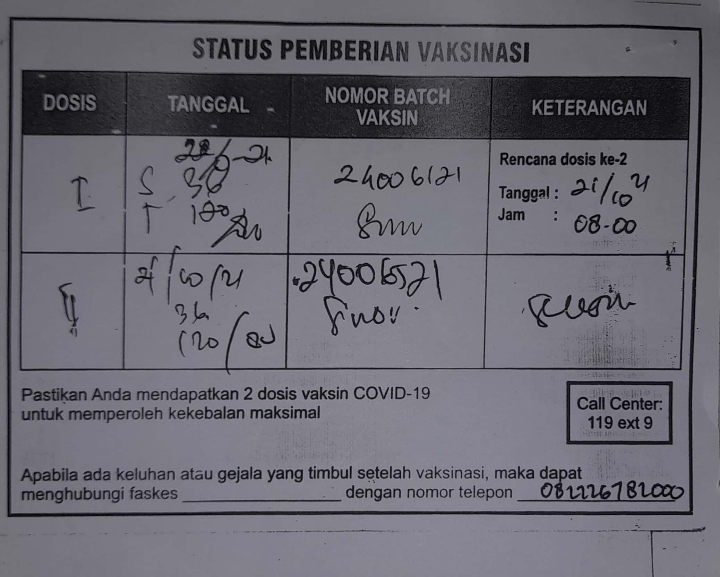 STATUS PEMBERIAN VAKSINASI
DOSIS TANGGAL NOMOR BATCH VAKSIN KETERANGAN
I
S 36
T 120/80
24006121
Rencana dosis ke-2
Tanggal : 21/10 21
Jam : 08-00
II
21/10/21
36
120/80
24006521
Sinov
Pastikan Anda mendapatkan 2 dosis vaksin COVID-19
untuk memperoleh kekebalan maksimal
Call Center:
119 ext 9
Apabila ada keluhan atau gejala yang timbul setelah vaksinasi, maka dapat
menghubungi faskes dengan nomor telepon 082226782000